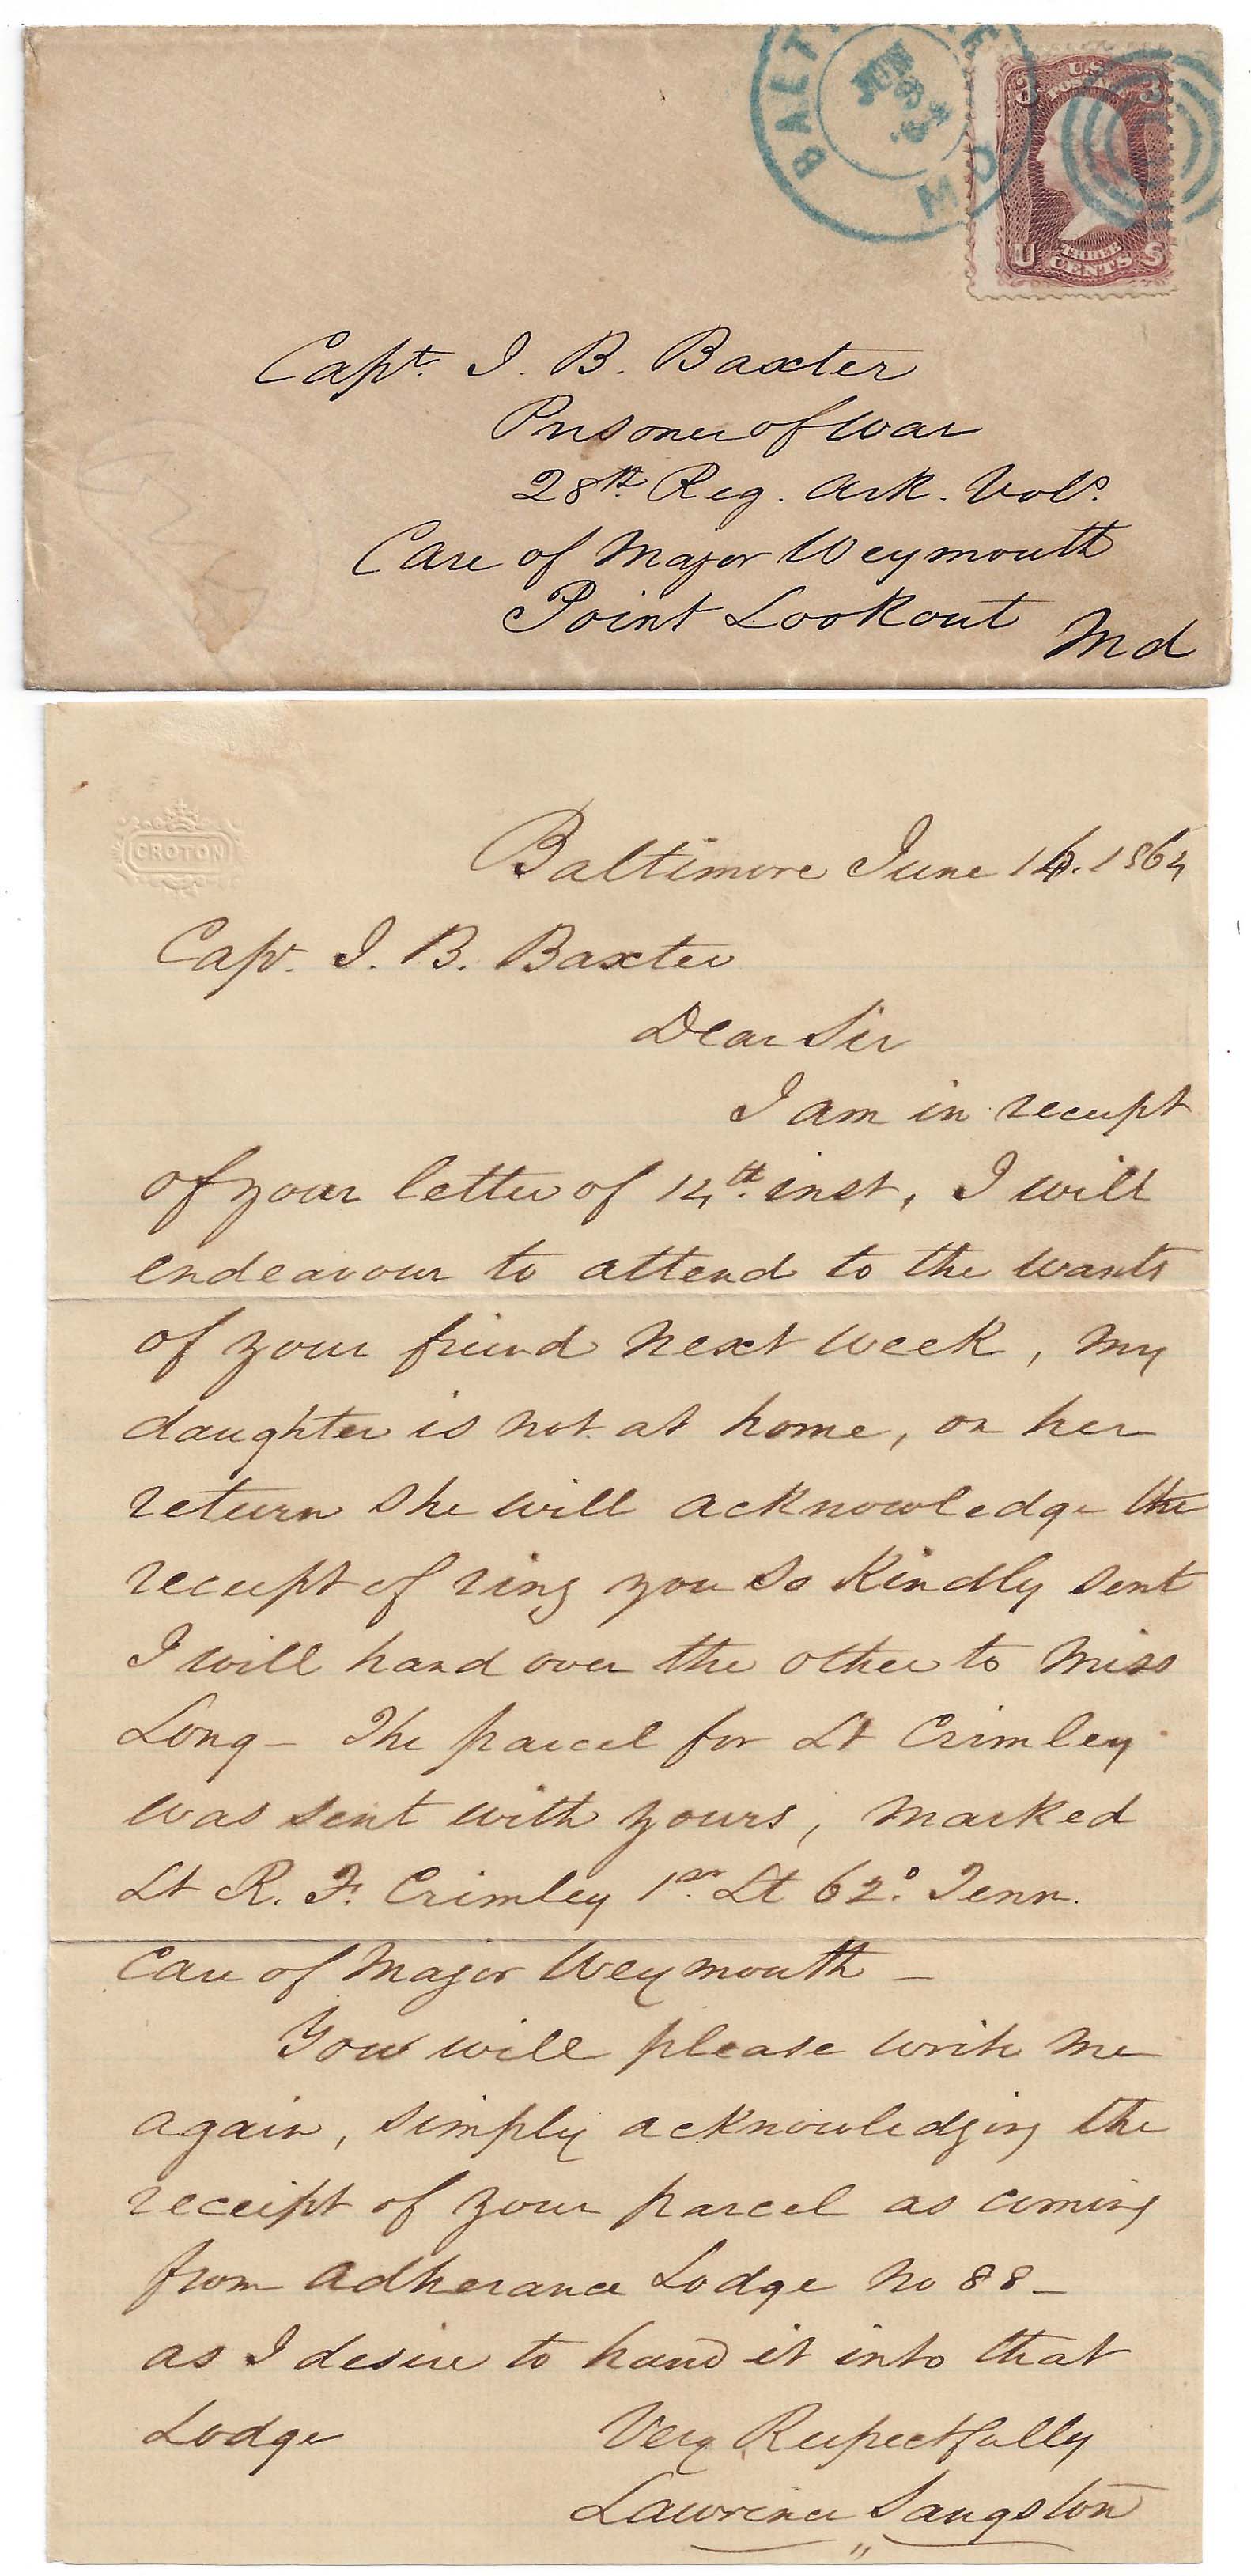 BALTIMORE
MD.
JUN
U.S. POSTAGE
3 3
THREE CENTS
U S
Capt. I. B. Baxter
Prisoner of War
28th Reg. Ark. Vols.
Care of Major Weymouth
Point Lookout Md
CROTON
Baltimore June 16. 1864
Capt. I. B. Baxter
Dear Sir
I am in receipt
of your letter of 14th. inst, I will
endeavour to attend to the wants
of your friend next week, my
daughter is not at home, on her
return she will acknowledge the
receipt of ring you so kindly sent
I will hand over the other to Miss
Long – The parcel for Lt Crimley
was sent with yours, marked
Lt R. F. Crimley 1st. Lt 62d. Tenn.
Care of Major Weymouth –
You will please write me
again, simply acknowledging the
receipt of your parcel as coming
from Adherance Lodge No 88 –
as I desire to hand it into that
Lodge Very Respectfully
Lawrence Sangston